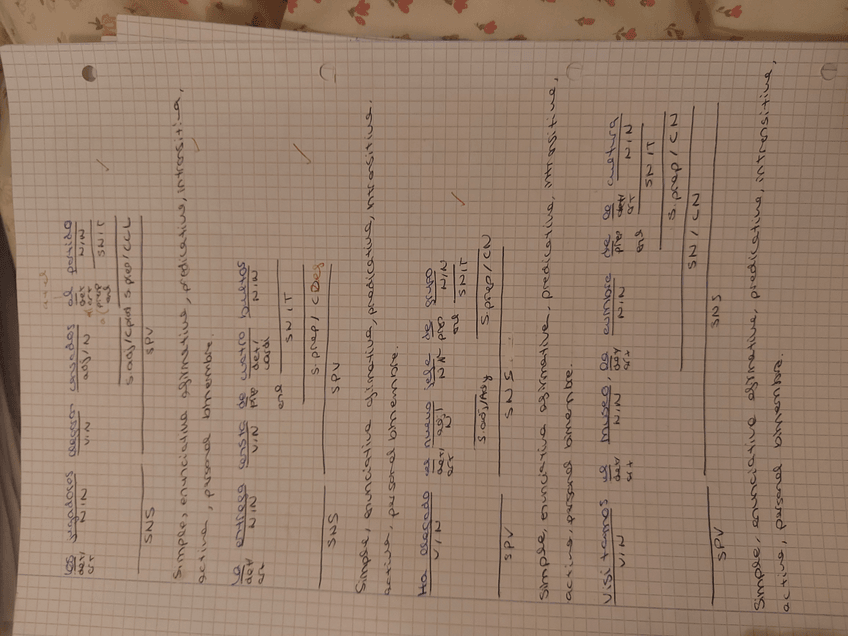 Los jugadores llegaron cansados al partido
det/ N/N V/N adj/N det N/N
art art
prep SN/T
enl
S.adj/Cpred S.prep/CCL
SNS SPV
Simple, enunciativa afirmativa, predicativa, intransitiva,
activa, personal bimembre.
La entrega consta de cuatro puntos
det/ N/N V/N prep det/ N/N
art card
enl SN/T
S.prep/CReg
SNS SPV
Simple, enunciativa afirmativa, predicativa, intransitiva,
activa, personal bimembre.
Ha llegado el nuevo jefe de grupo
V/N det/ adj/ N/N prep N/N
art N enl SN/T
S.adj/Ady S.prep/CN
SPV SNS
Simple, enunciativa afirmativa, predicativa, intransitiva,
activa, personal bimembre.
Visitamos el museo, la cumbre de la cultura
V/N det/ N/N det/ N/N prep det/ N/N
art art art
enl SN/T
S.prep/CN
SN/CN
SPV SNS
Simple, enunciativa afirmativa, predicativa, intransitiva,
activa, personal bimembre.